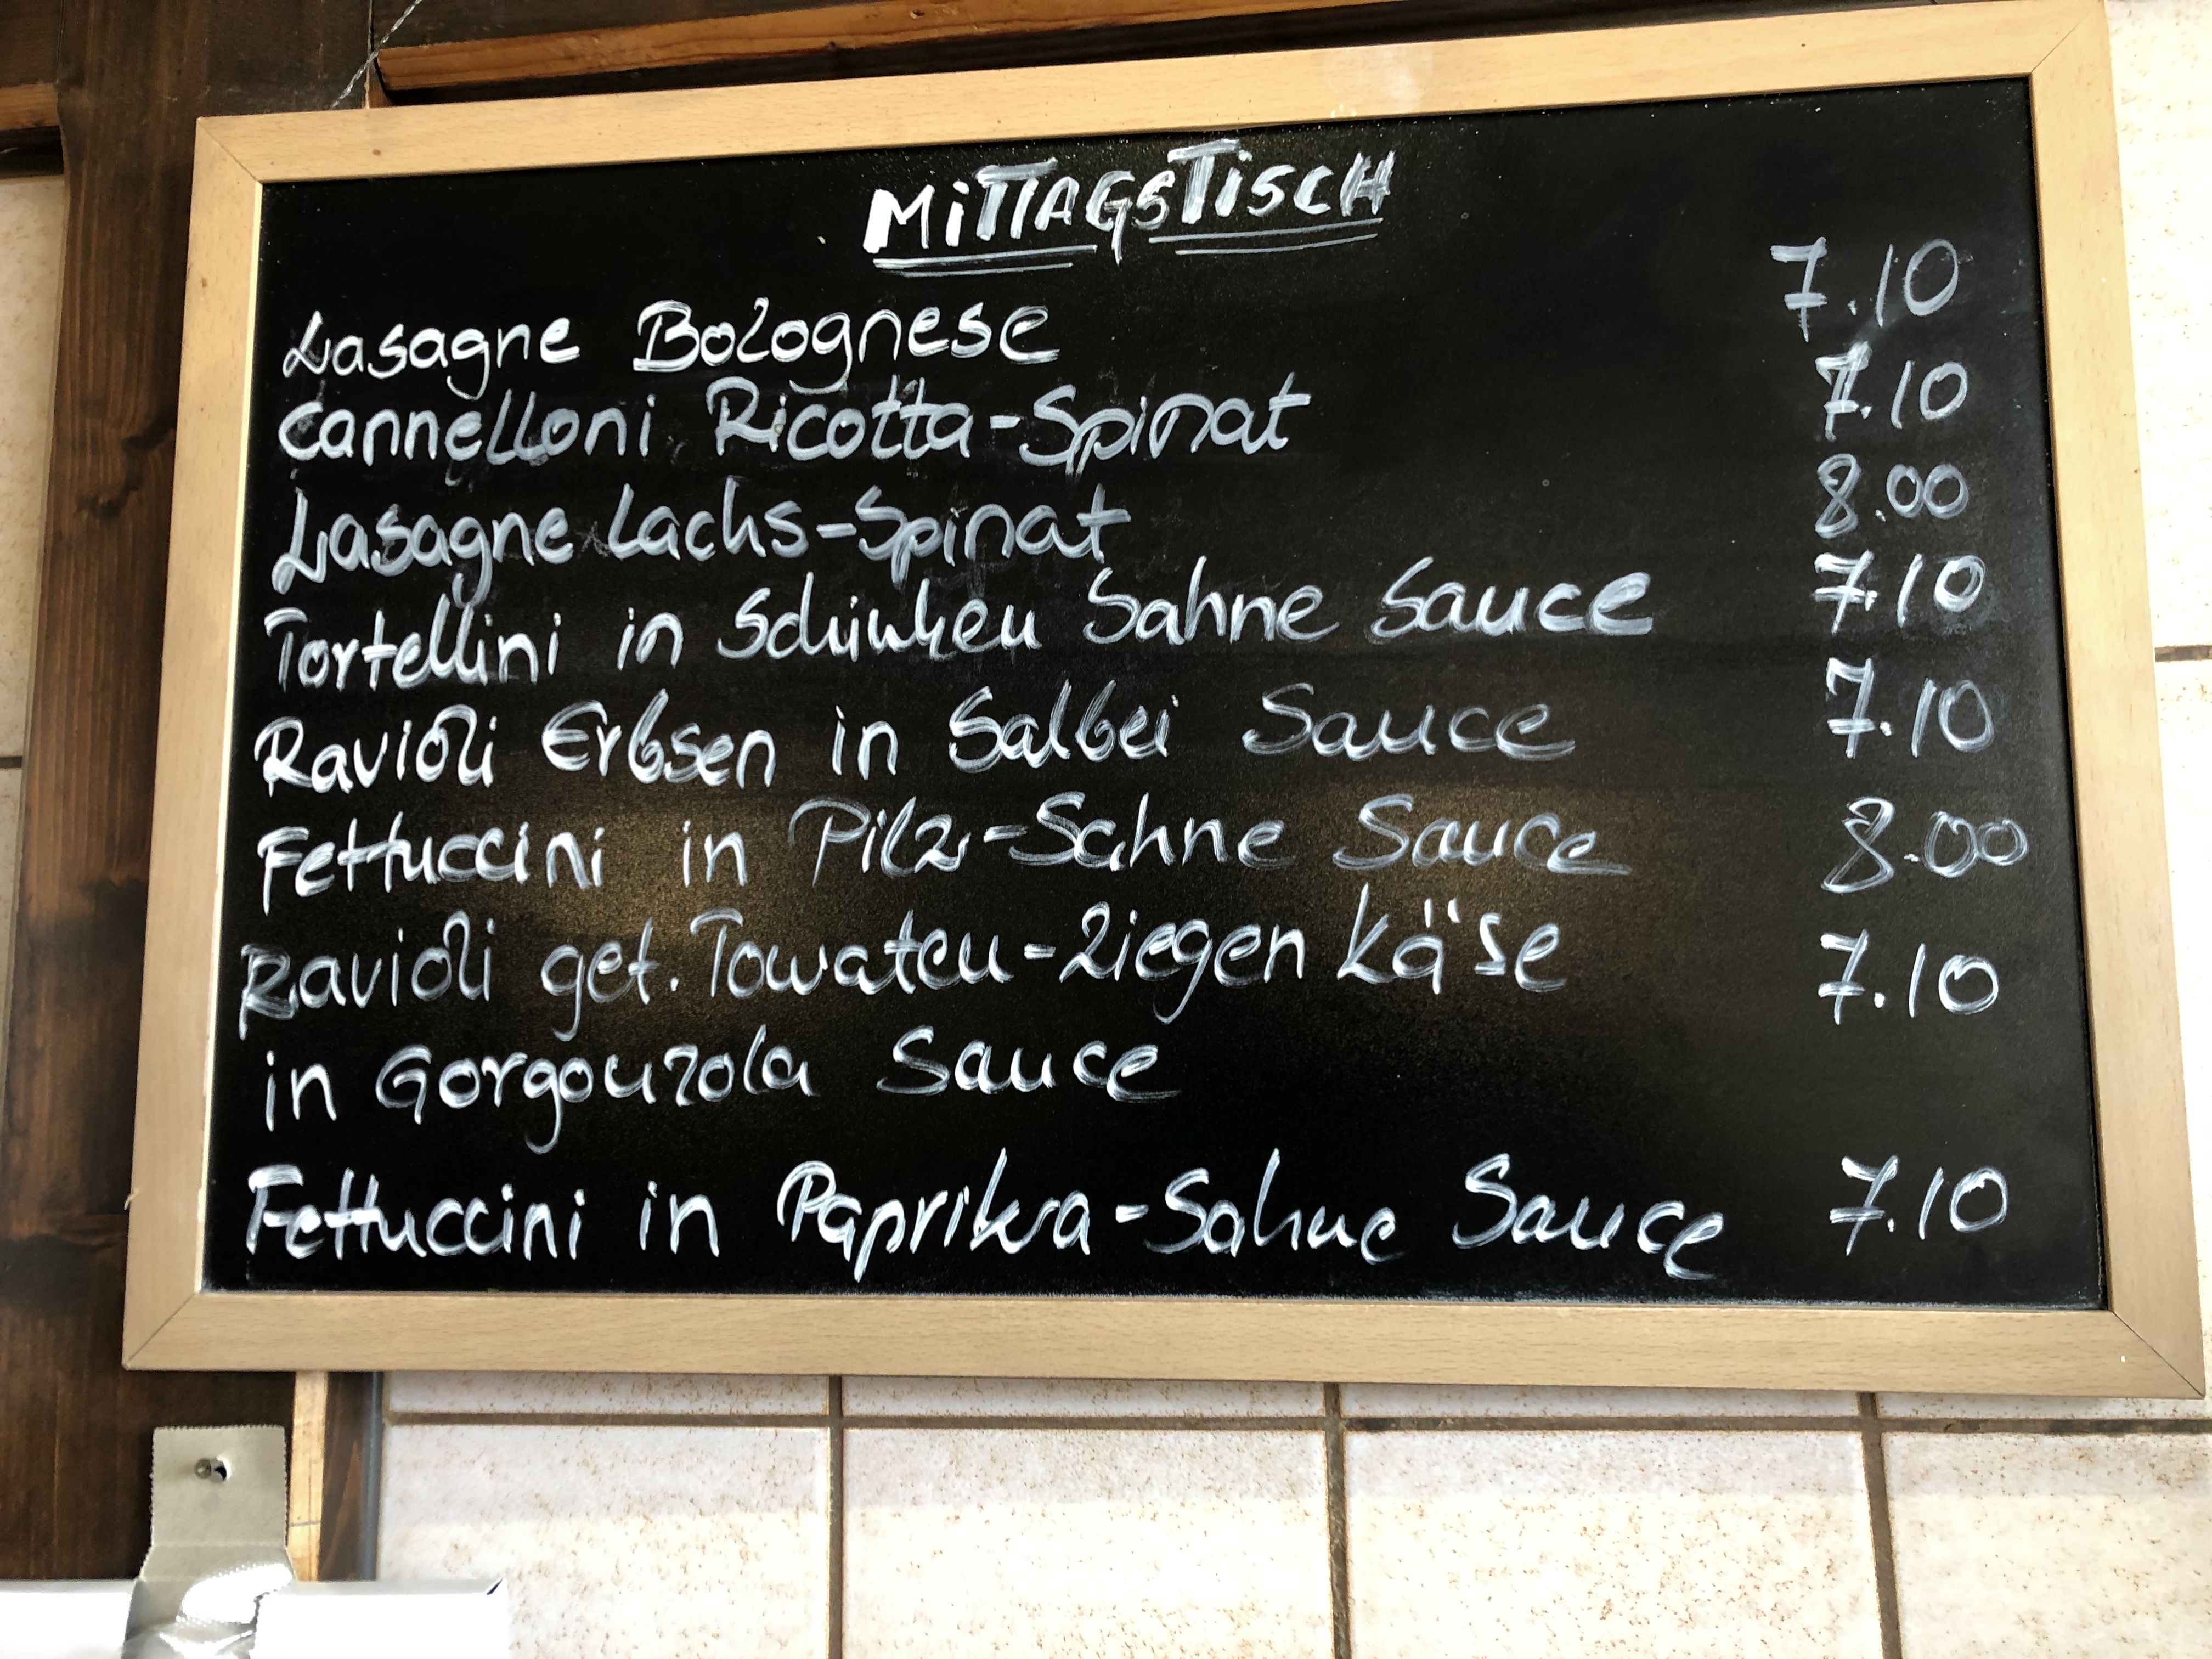 MiTTAGSTiSCH
Lasagne Bolognese 7.10
Cannelloni Ricotta-Spinat 7.10
Lasagne Lachs-Spinat 8.00
Tortellini in Schinken Sahne Sauce 7.10
Ravioli Erbsen in Salbei Sauce 7.10
Fettuccini in Pilz-Sahne Sauce 8.00
Ravioli get. Tomaten-Ziegen Käse 7.10
in Gorgonzola Sauce
Fettuccini in Paprika-Sahne Sauce 7.10